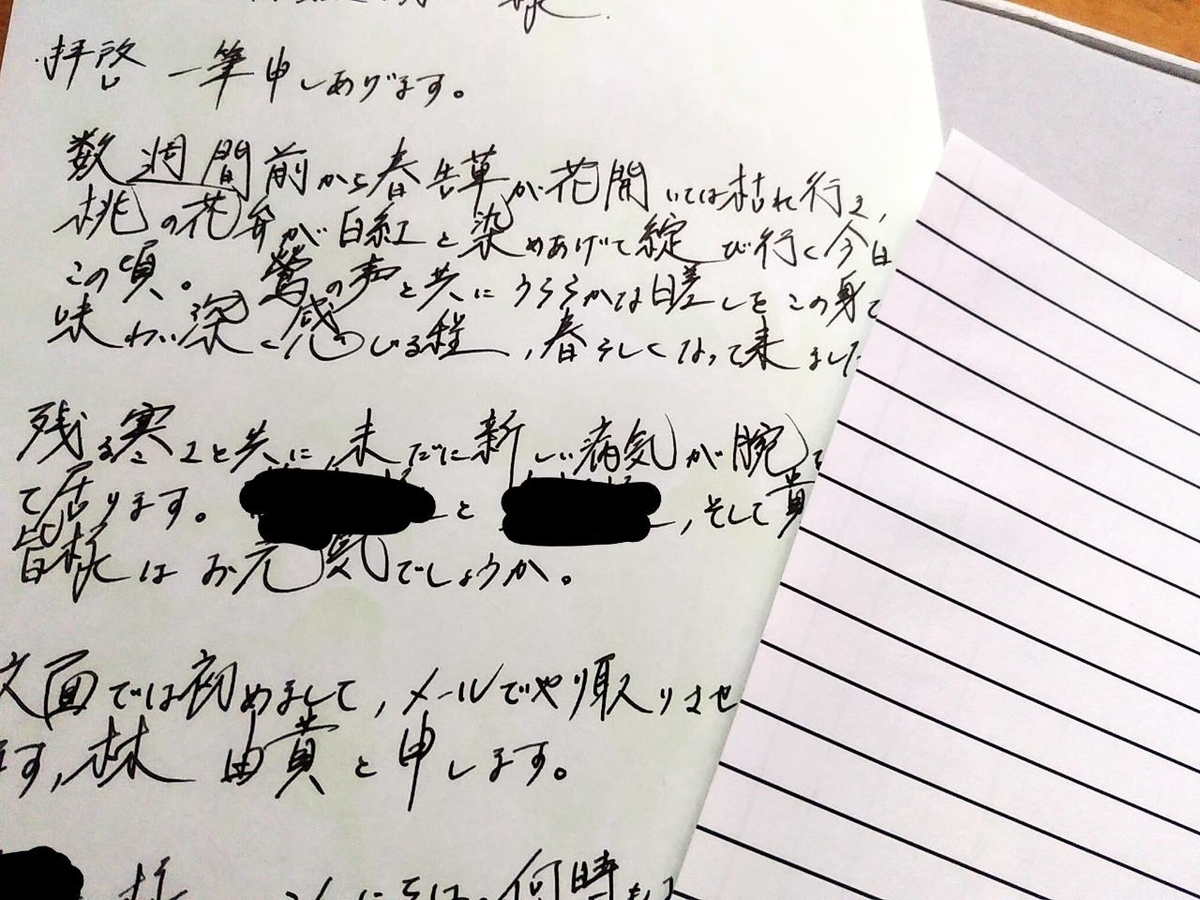 様
拝啓 一筆申しあげます。
数週間前から春告草が花開いては枯れ行き,
桃の花弁が白紅と染めあげて綻び行く今日
この頃。鶯の声と共にうららかな日差しをこの身で
味わい深く感じる程,春らしくなって来ました
残る寒さと共に,未だに新しい病気が
て居ります。 と ,そして貴
皆様はお元気でしょうか。
文面では初めまして,メールでやり取りさせ
ます,林 由貴と申します。
様 こんにちは。何時も